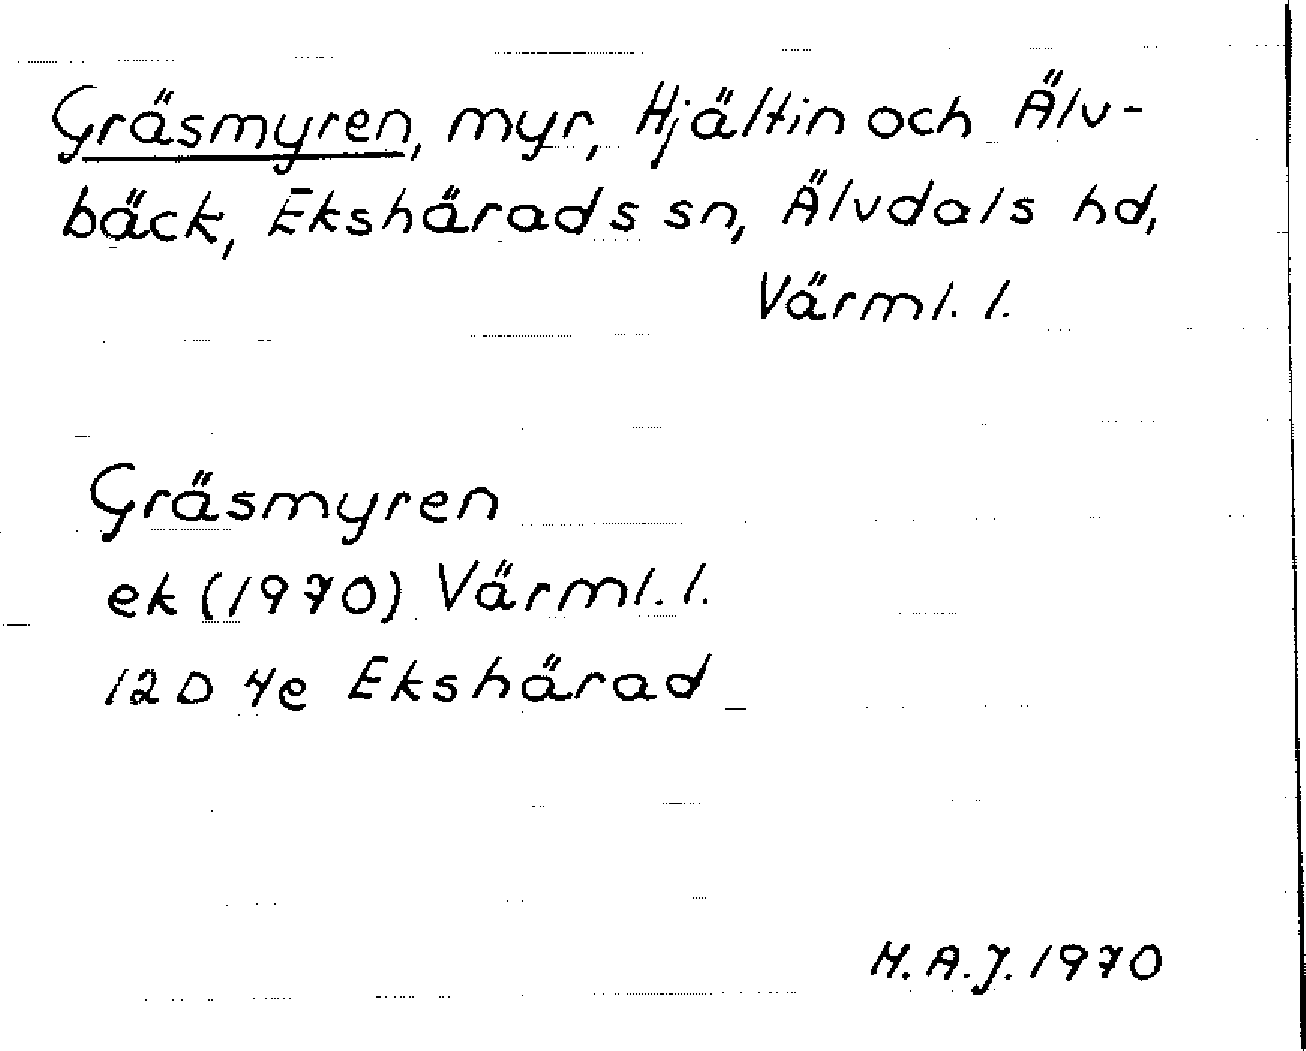 Gräsmyren, myr, Hjältin och Älv-
bäck, Ekshärads sn, Älvdals hd,
Värml. l.
Gräsmyren
ek (1970) Värml. l.
12 D 4e Ekshärad
H. A. J. 1970